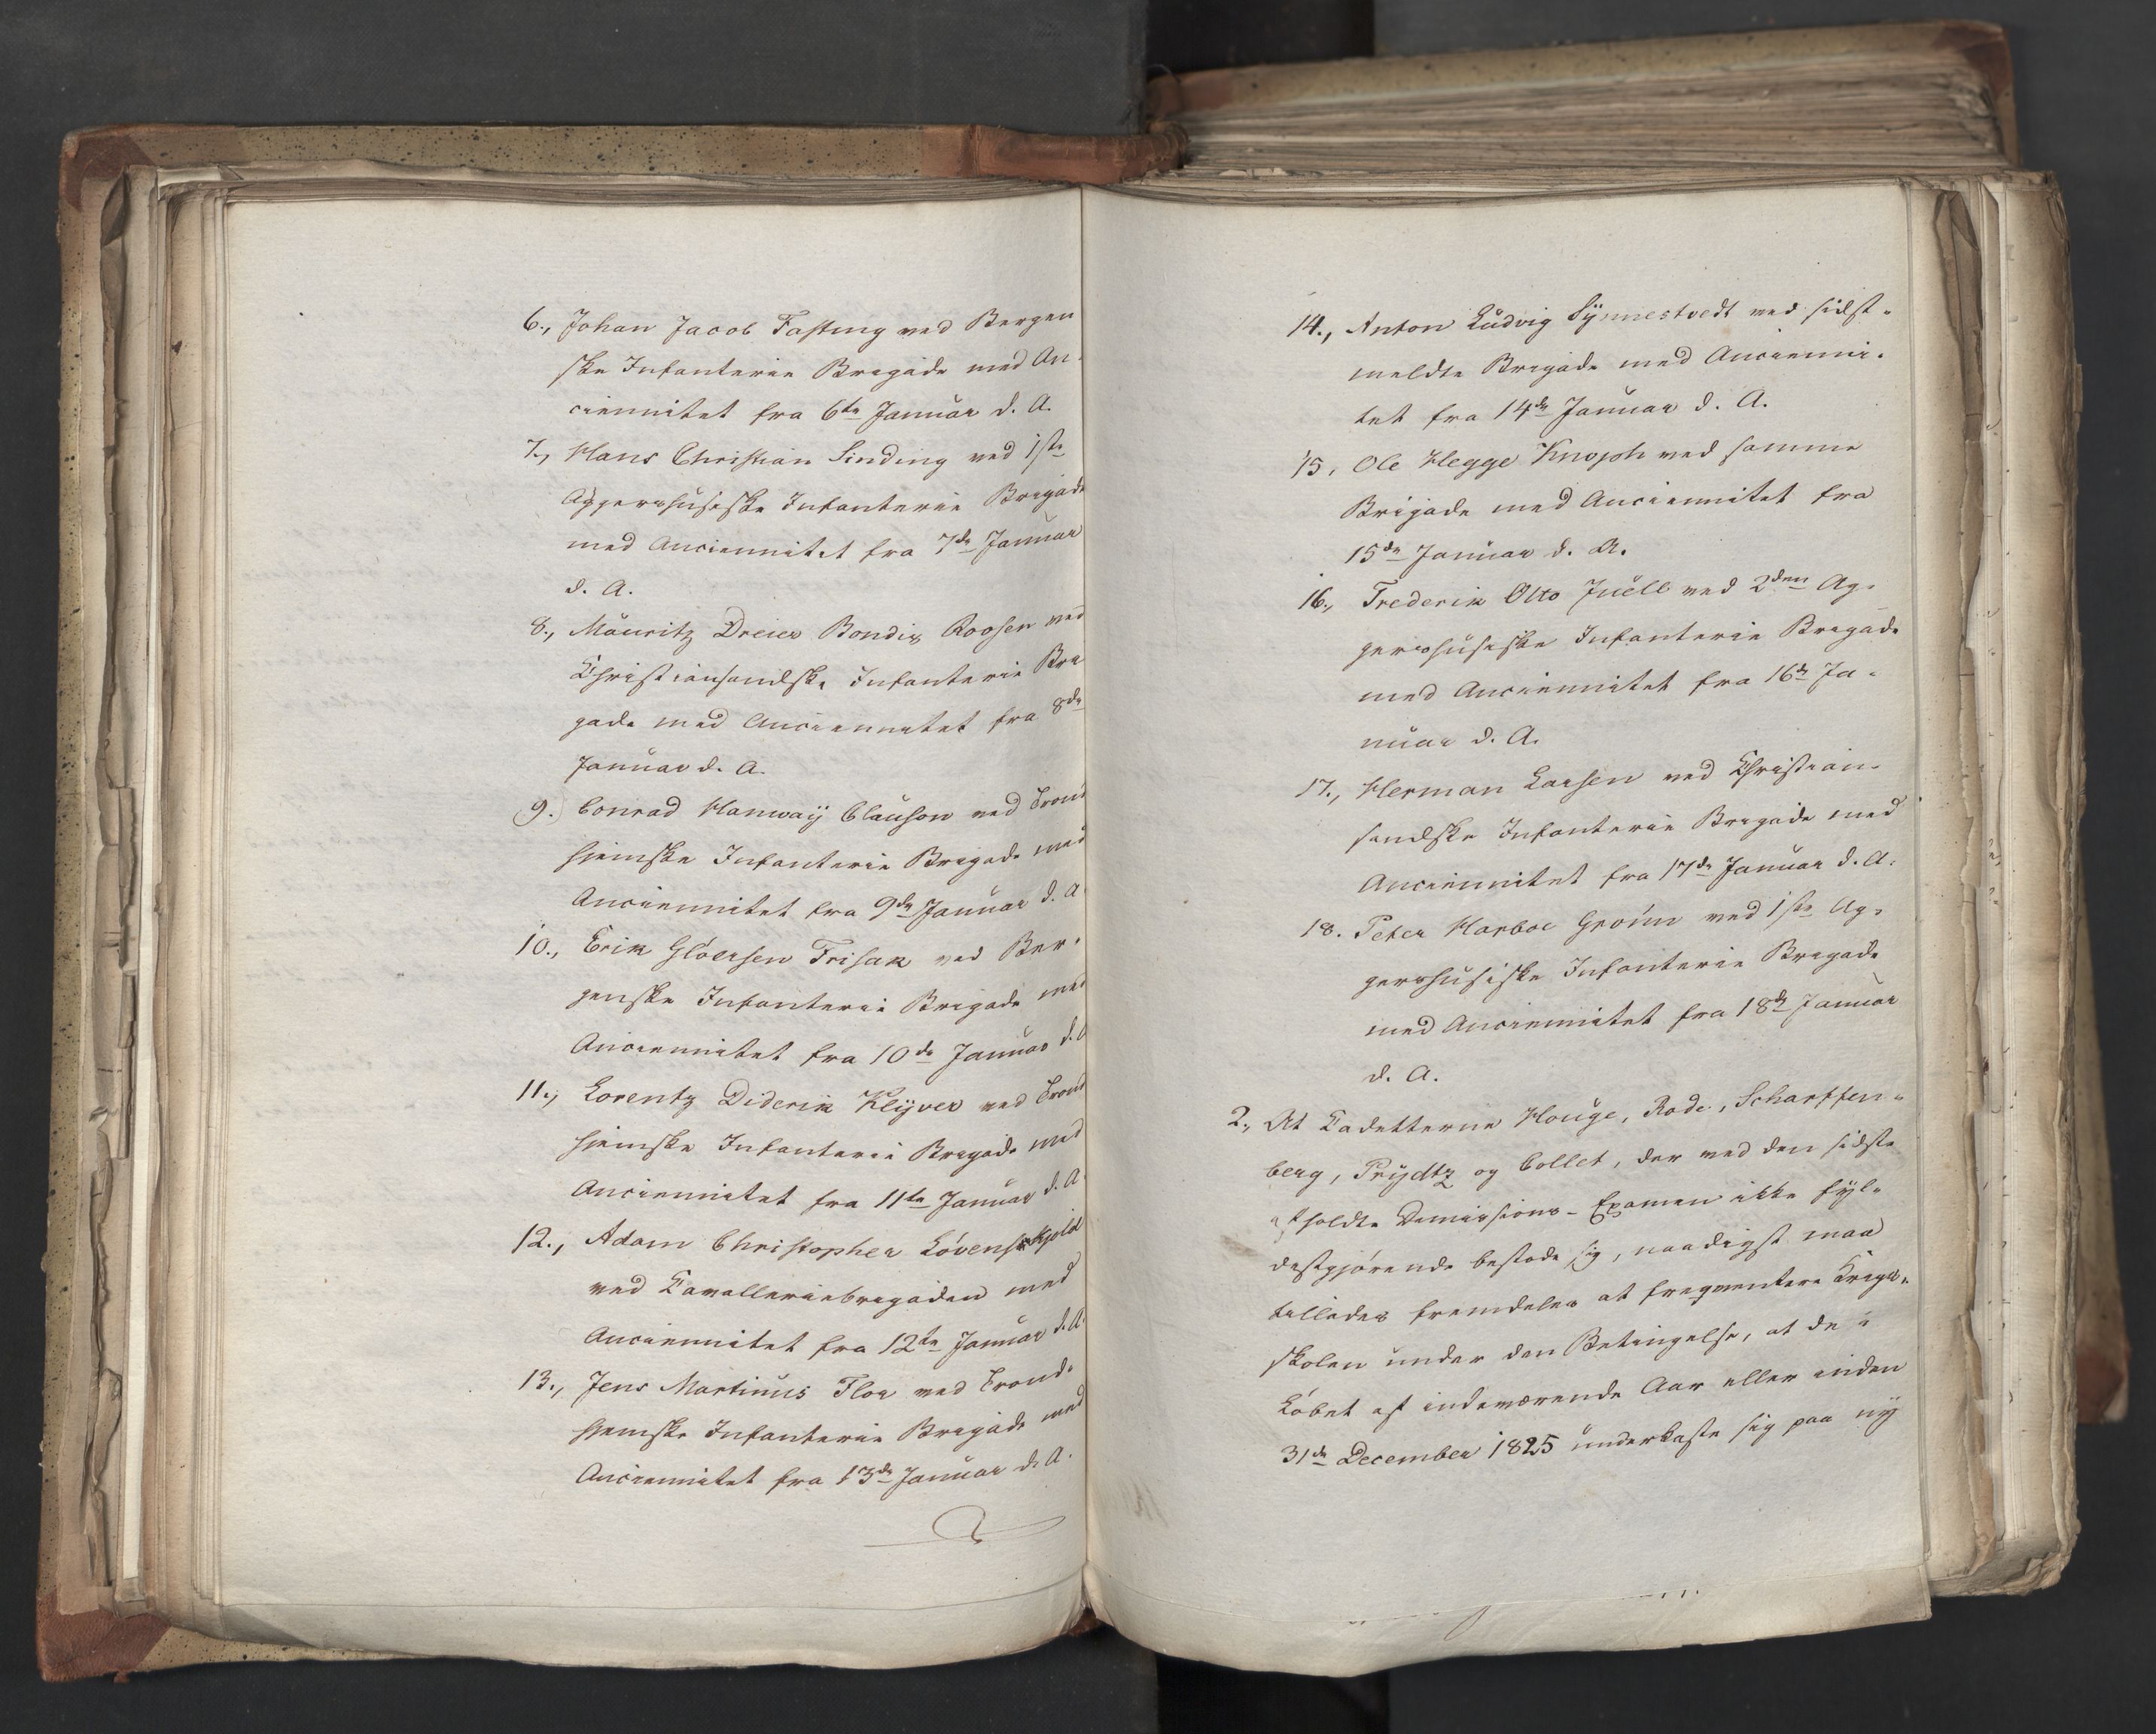 6., Johan Jacob Fasting ved Bergen
ske Infanterie Brigade med An
ciennitet fra 6te Januar d. A.
7., Hans Christian Sinding ved 1ste
Aggershusiske Infanterie Brigade
med Anciennitet fra 7de Januar
d. A.
8., Mauritz Dreier Bondix Roosen ved
Christiansandske Infanterie Bri
gade med Anciennitet fra 8de
Januar d. A.
9. Conrad Hanway Clauson ved Trond
hjemske Infanterie Brigade med
Anciennitet fra 9de Januar d. A
10., Erik Gløersen Frisak ved Ber-
genske Infanterie Brigade med
Anciennitet fra 10de Januar d. A
11., Lorentz Diderik Klÿver ved Trond
hjemske Infanterie Brigade med
Anciennitet fra 11te Januar d. A.
12., Adam Christopher Løvenskjold
ved Cavalleriebrigaden med
Anciennitet fra 12te Januar d. A.
13., Jens Martinus Flor ved Trond-
hjemske Infanterie Brigade med
Anciennitet fra 13de Januar d. A.
14., Anton Ludvig Sÿnnestvedt ved sidst-
meldte Brigade med Ancienni-
tet fra 14de Januar d. A.
15, Ole Hegge Knoph ved samme
Brigade med Anciennitet fra
15de Januar d. A.
16., Frederik Otto Juell ved 2den Ag-
gershusiske Infanterie Brigade
med Anciennitet fra 16de Ja-
nuar d. A.
17., Herman Larsen ved Christian-
sandske Infanterie Brigade med
Anciennitet fra 17de Januar d. A.
18. Peter Harboe Grønn ved 1ste Ag-
gershusiske Infanterie Brigade
med Anciennitet fra 18de Januar
d. A.
2., At Cadetterne Houge, Rode, Scharffen-
berg, Prÿdtz og Collet, der ved den sidste
afholdte Dimissions-Examen ikke fyl-
destgjørende bestode sig, naadigst maa
tillades fremdeles at freqventere Krigs-
skolen under den Betingelse, at de i
Løbet af indeværende Aar eller inden
31de December 1825 underkaste sig paa nÿ